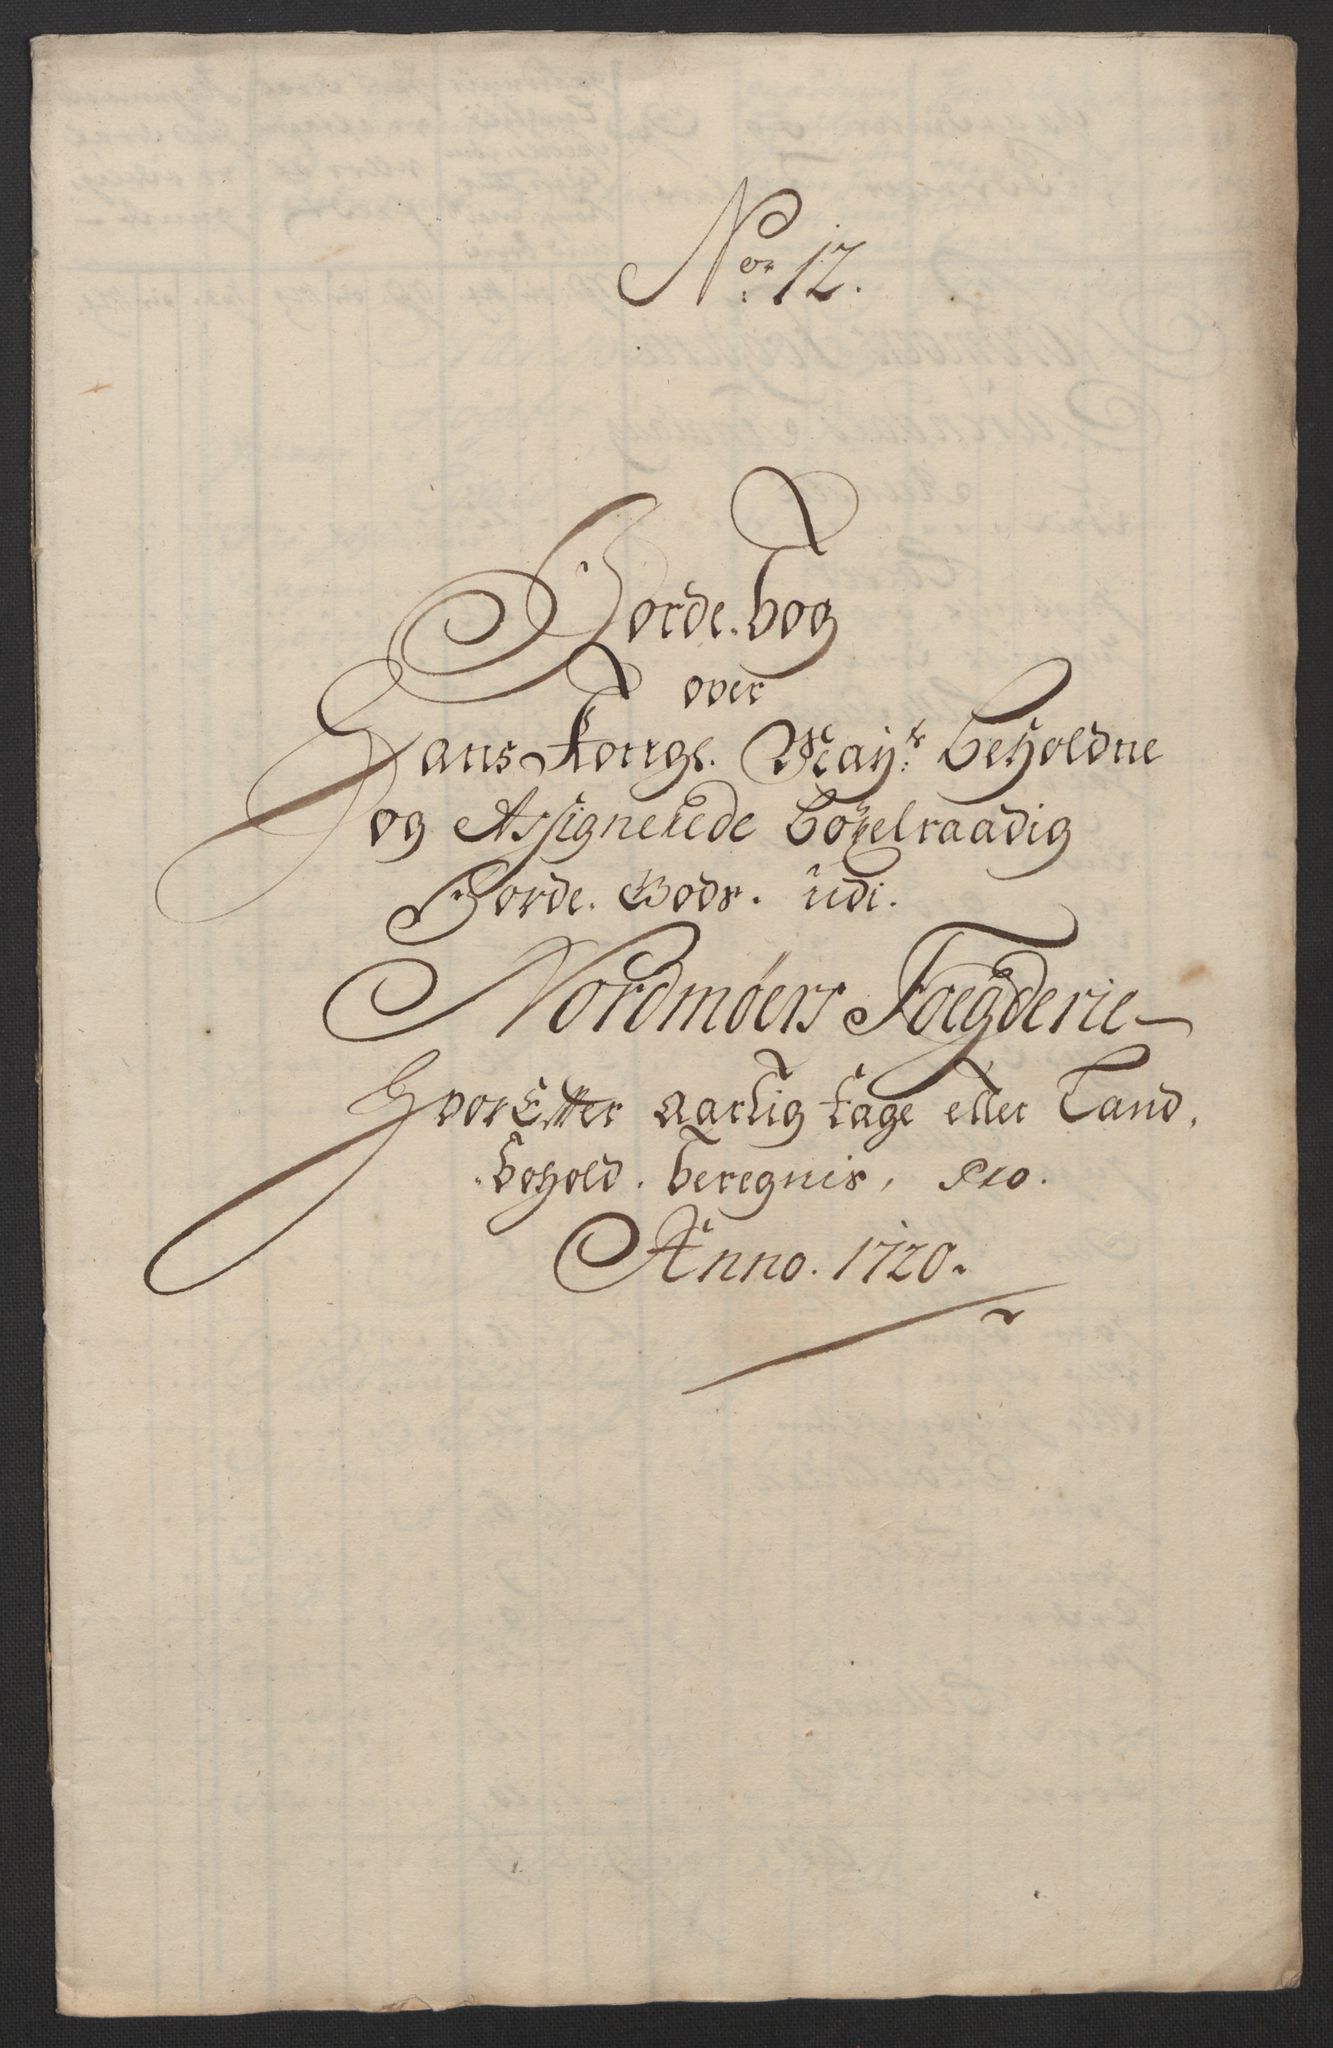 No 12.
Jorde. bog
over
Hans Kongl. Mayts beholdne
og Assignerede bøxelraadig
Jorde. Gods. udi.
Nordmøers Foegderie
Hvor Effter aarlig tage eller Land,
bohold. beregnis, Pro.
Anno. 1720.